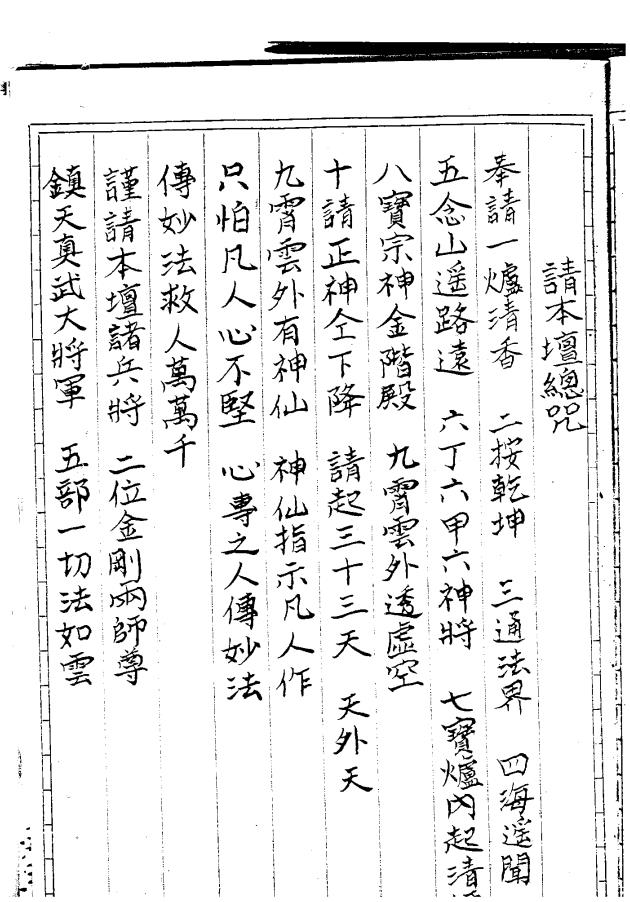 請本壇總咒
奉請一爐清香　二按乾坤　三通法界　四海遥聞
五念山遥路遠　六丁六甲六神將　七寶爐內起清
八寶宗神金階殿　九霄雲外透虛空
十請正神仝下降　請起三十三天　天外天
九霄雲外有神仙　神仙指示凡人作
只怕凡人心不堅　心專之人傳妙法
傳妙法救人萬萬千
謹請本壇諸兵將　二位金剛兩師尊
鎮天真武大將軍　五部一切法如雲